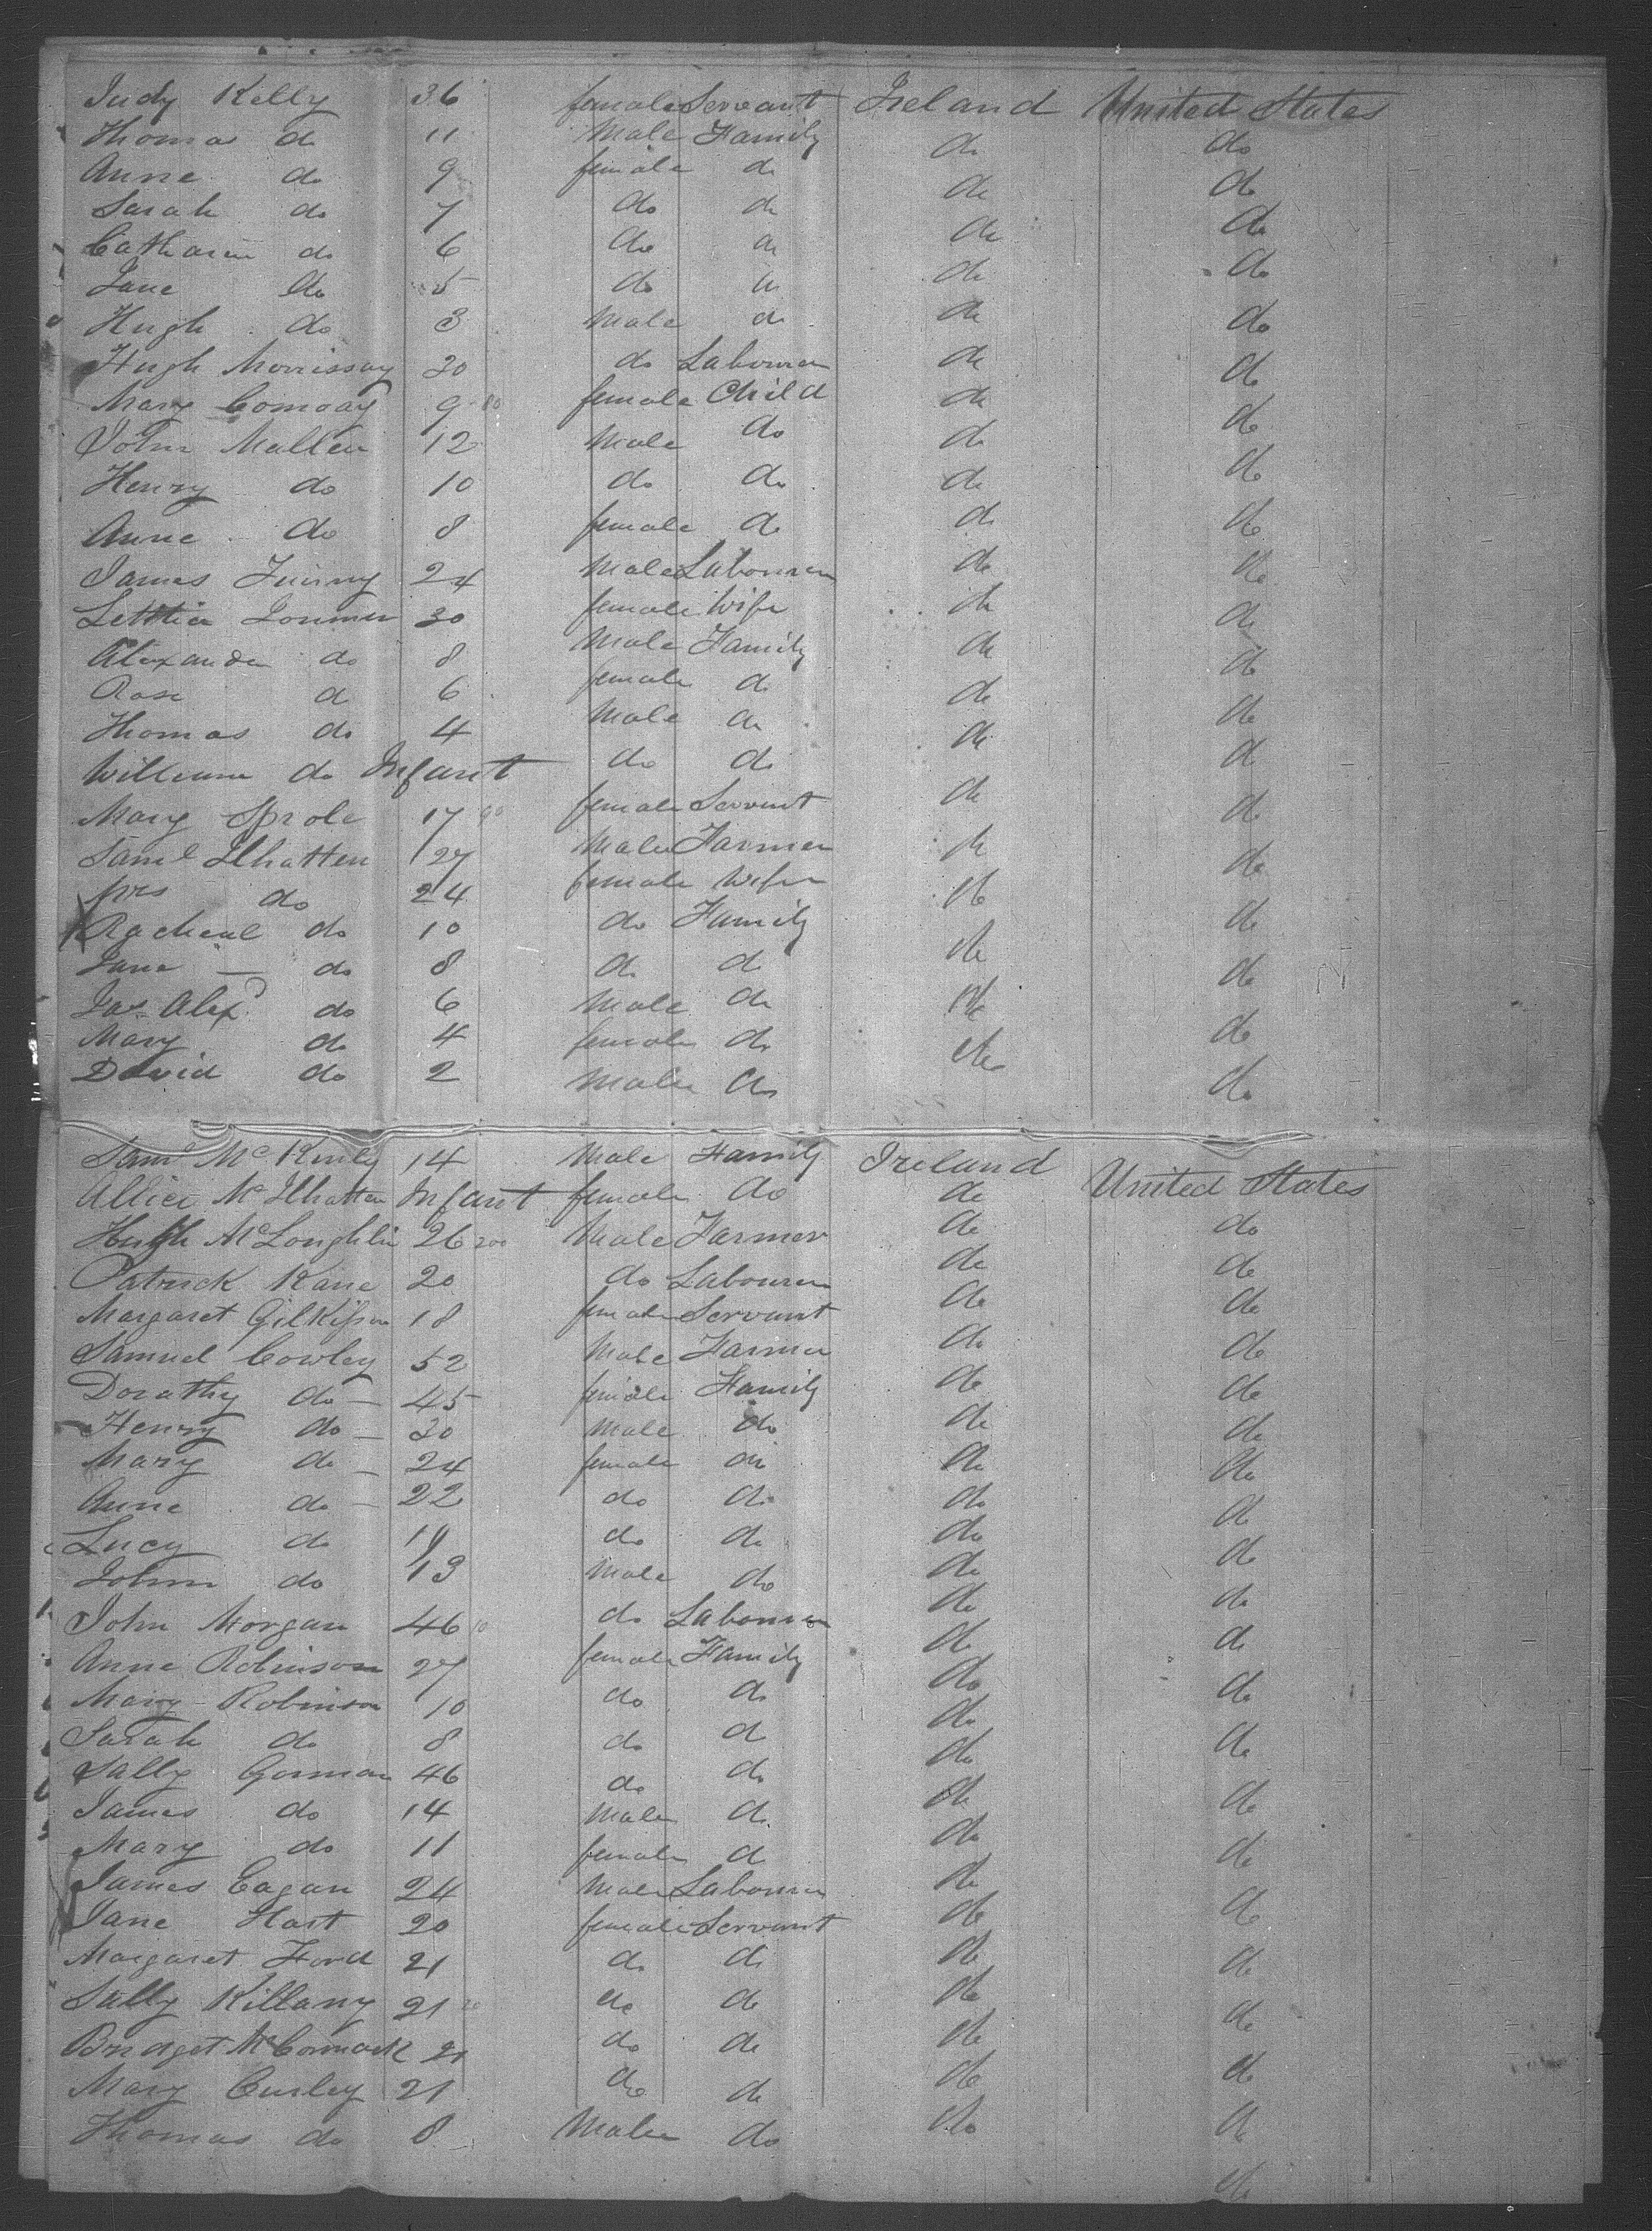 Judy Kelly 36 female Servant Ireland United States
Thomas do 11 Male Family do do
Anne do 9 female do do do
Sarah do 7 do do do do
Catharine do 6 do do do do
Jane do 5 do do do do
Hugh do 3 Male do do do
Hugh Morrissay 20 do Labourer do do
Mary Conway 9 female Child do do
John Mallen 12 Male do do do
Henry do 10 do do do do
Anne do 8 female do do do
James 24 Male Labourer do do
Letitia 30 female Wife do do
Alexander do 8 Male Family do do
Rose do 6 female do do do
Thomas do 4 Male do do do
William do Infant do do do do
Mary Sprole 17 90 female Servant do do
Saml Ilhatten 27 Male Farmer do do
Mrs do 24 female Wife do do
Racheal do 10 do Family do do
Jane — do 8 do do do do
Jas Alexr do 6 Male do do do
Mary do 4 female do do do
David do 2 Male do do do
Saml Mc Kinly 14 Male Family Ireland United States
Allice Mc Ilhatten Infant female do do
Hugh McLoughlin 26 200 Male Farmer do do
Patrick Kane 20 do Labourer do do
Margaret Gilkison 18 female Servant do do
Samuel Cowley 52 Male Farmer do do
Dorathy do — 45 female Family do do
Henry do — 20 Male do do do
Mary do — 24 female do do do
Anne do — 22 do do do do
Lucy do 19 do do do do
John do 13 Male do do do
John Morgan 46 10 do Labourer do do
Anne Robinson 27 female Family do do
Mary Robinson 10 do do do do
Sarah do 8 do do do do
Sally Gorman 46 do do do do
James do 14 Male do do do
Mary do 11 female do do do
James Eagan 24 Male Labourer do do
Jane Hart 20 female Servant do do
Margaret Ford 21 do do do do
Sally Killany 21 20 do do do do
Bridget McCormack 21 do do do do
Mary Curley 21 do do do do
Thomas do 8 Male do do do